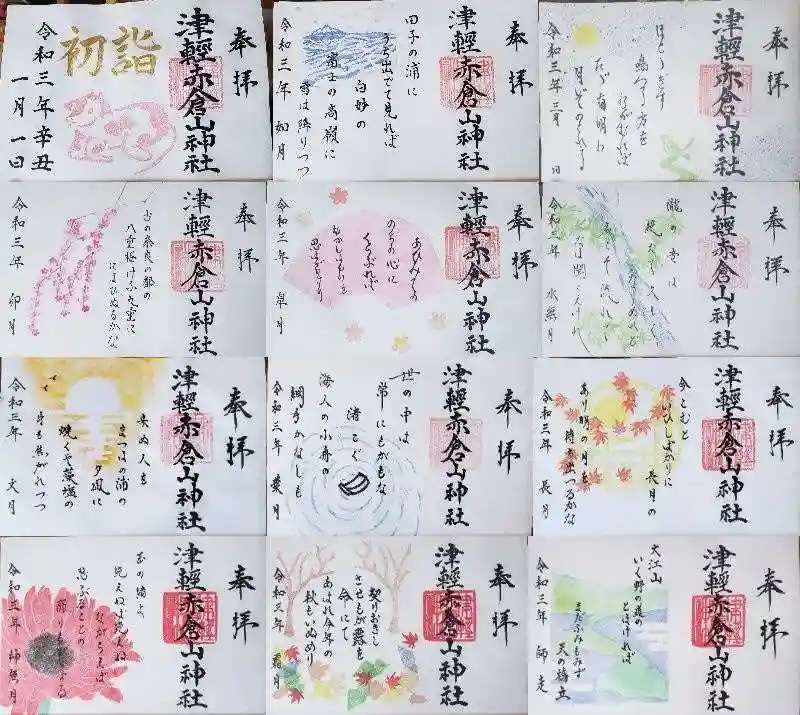 奉拝
津輕赤倉山神社
初詣
令和三年辛丑
一月一日
奉拝
津輕赤倉山神社
田子の浦に
うち出でて見れば
白妙の
富士の高嶺に
雪は降りつつ
令和三年 如月
奉拝
津輕赤倉山神社
ほととぎす
鳴つる方を
ながむれば
ただ有明の
月ぞのこれる
令和三年三月 日
奉拝
津輕赤倉山神社
古の奈良の都の
八重桜けふ九重に
にほひぬるかな
令和三年 卯月
奉拝
津輕赤倉山神社
あひみての
のちの心に
くらぶれば
むかしはものを
思はざりけり
令和三年 皐月
奉拝
津輕赤倉山神社
滝の音は
絶えて久しく
なりぬれど
名こそ流れて
なほ聞こえけれ
令和三年 水無月
奉拝
津輕赤倉山神社
来ぬ人を
まつほの浦の
夕凪に
焼くや藻塩の
身も焦がれつつ
令和三年 文月
奉拝
津輕赤倉山神社
世の中は
常にもがもな
渚こぐ
海人の小舟の
綱手かなしも
令和三年 葉月
奉拝
津輕赤倉山神社
今こむと
いひしばかりに
長月の
あり明の月を
待ち出つるかな
令和三年 長月
奉拝
津輕赤倉山神社
玉の緒よ
絶えねば絶えね
ながらえば
忍ぶることの
弱りもぞする
令和三年 神無月
奉拝
津輕赤倉山神社
契りおきし
させもが露を
命にて
あはれ今年の
秋もいぬめり
令和三年 霜月
奉拝
津輕赤倉山神社
大江山
いく野の道の
とほければ
まだふみもみず
天の橋立
令和三年 師走